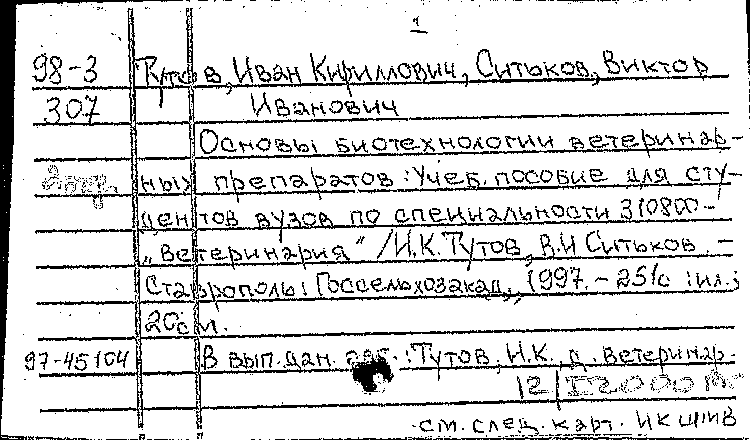 1
98-3 Тутов, Иван Кириллович, Ситьков, Виктор
307 Иванович
Основы биотехнологии ветеринар-
2 экз. ных препаратов : Учеб. пособие для сту-
дентов вузов по специальности 310800 -
"Ветеринария" / И.К. Тутов, В.И Ситьков. -
Ставрополь : Госсельхозакад., 1997. - 251с : ил.;
20см.
97-45104 В вып. дан. авт.: Тутов, И.К., д. ветеринар.
12 12000
см. след. карт.